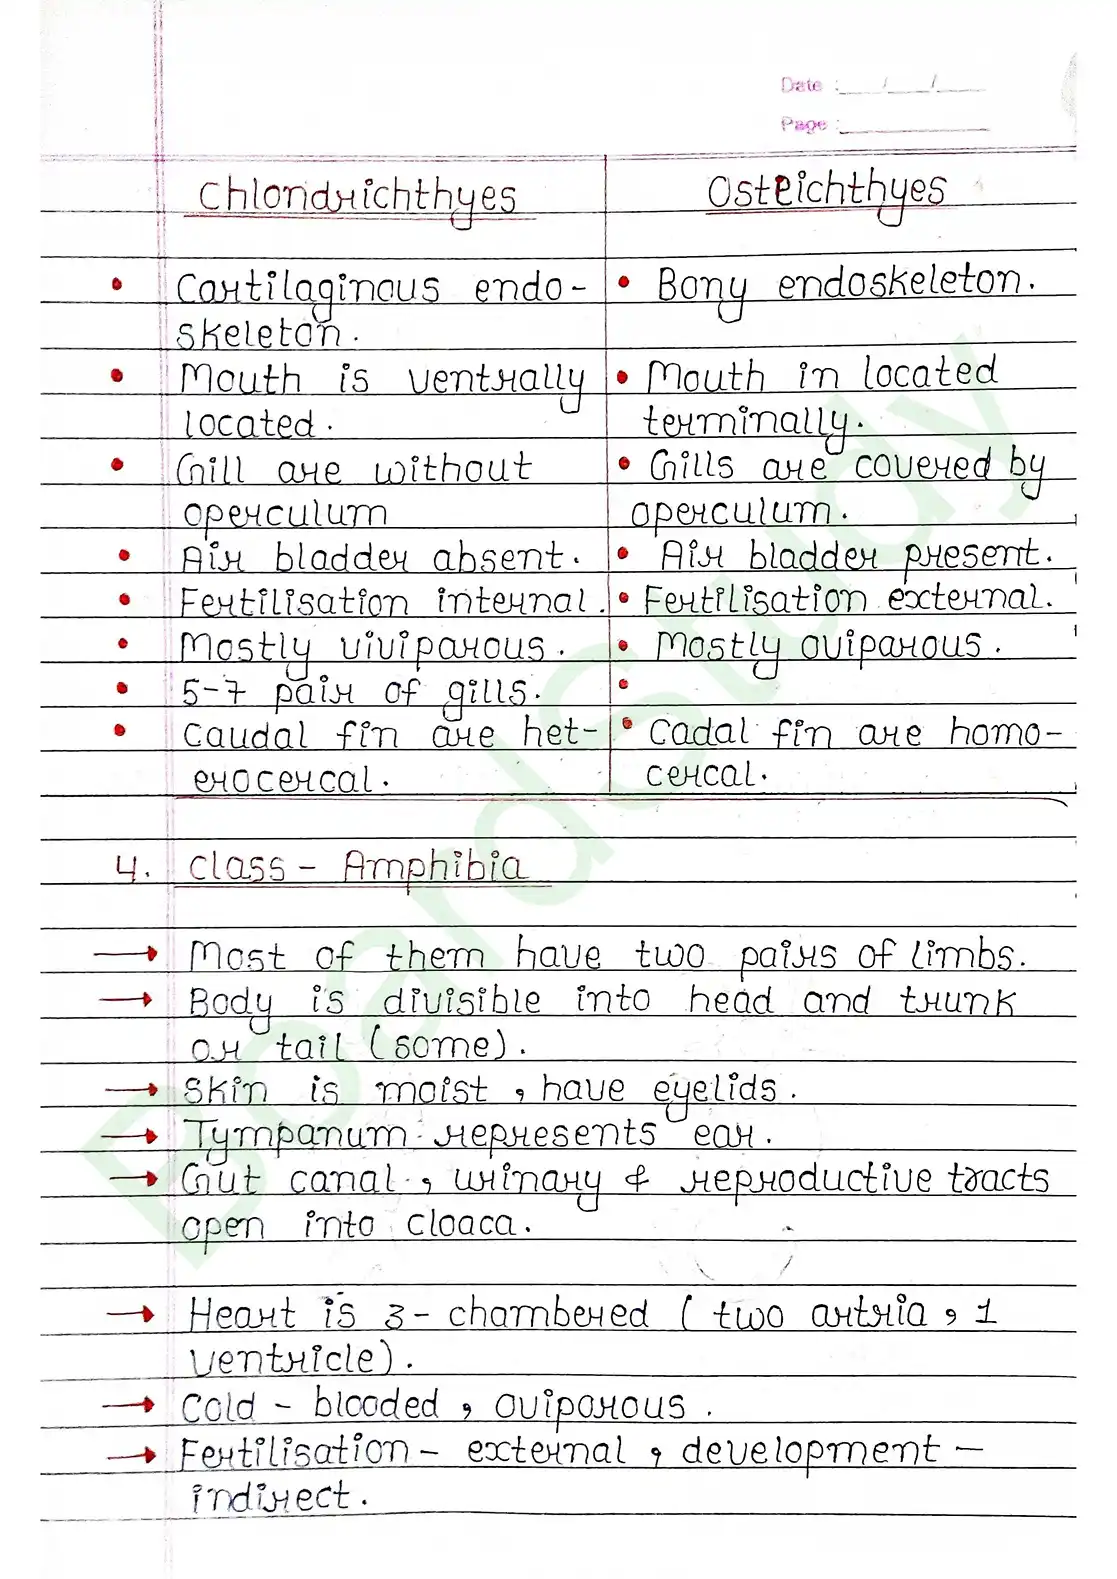 Date :___/___/___
Page :___________
Chlondrichthyes
Osteichthyes
• Cartilaginous endo-
skeleton.
• Bony endoskeleton.
• Mouth is ventrally
located.
• Mouth in located
terminally.
• Gill are without
operculum
• Gills are covered by
operculum.
• Air bladder absent.
• Air bladder present.
• Fertilisation internal.
• Fertilisation external.
• Mostly viviparous.
• Mostly oviparous.
• 5-7 pair of gills.
•
• Caudal fin are het-
erocercal.
• Cadal fin are homo-
cercal.
4. Class - Amphibia
→ Most of them have two pairs of limbs.
→ Body is divisible into head and trunk
or tail (some).
→ Skin is moist, have eyelids.
→ Tympanum represents ear.
→ Gut canal, urinary & reproductive tracts
open into cloaca.
→ Heart is 3-chambered (two artria, 1
ventricle).
→ Cold - blooded, oviparous.
→ Fertilisation - external, development -
indirect.
BoardStudy